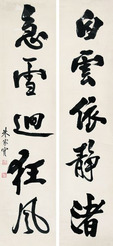 白雲依靜渚
急雪迴狂風
朱家寶